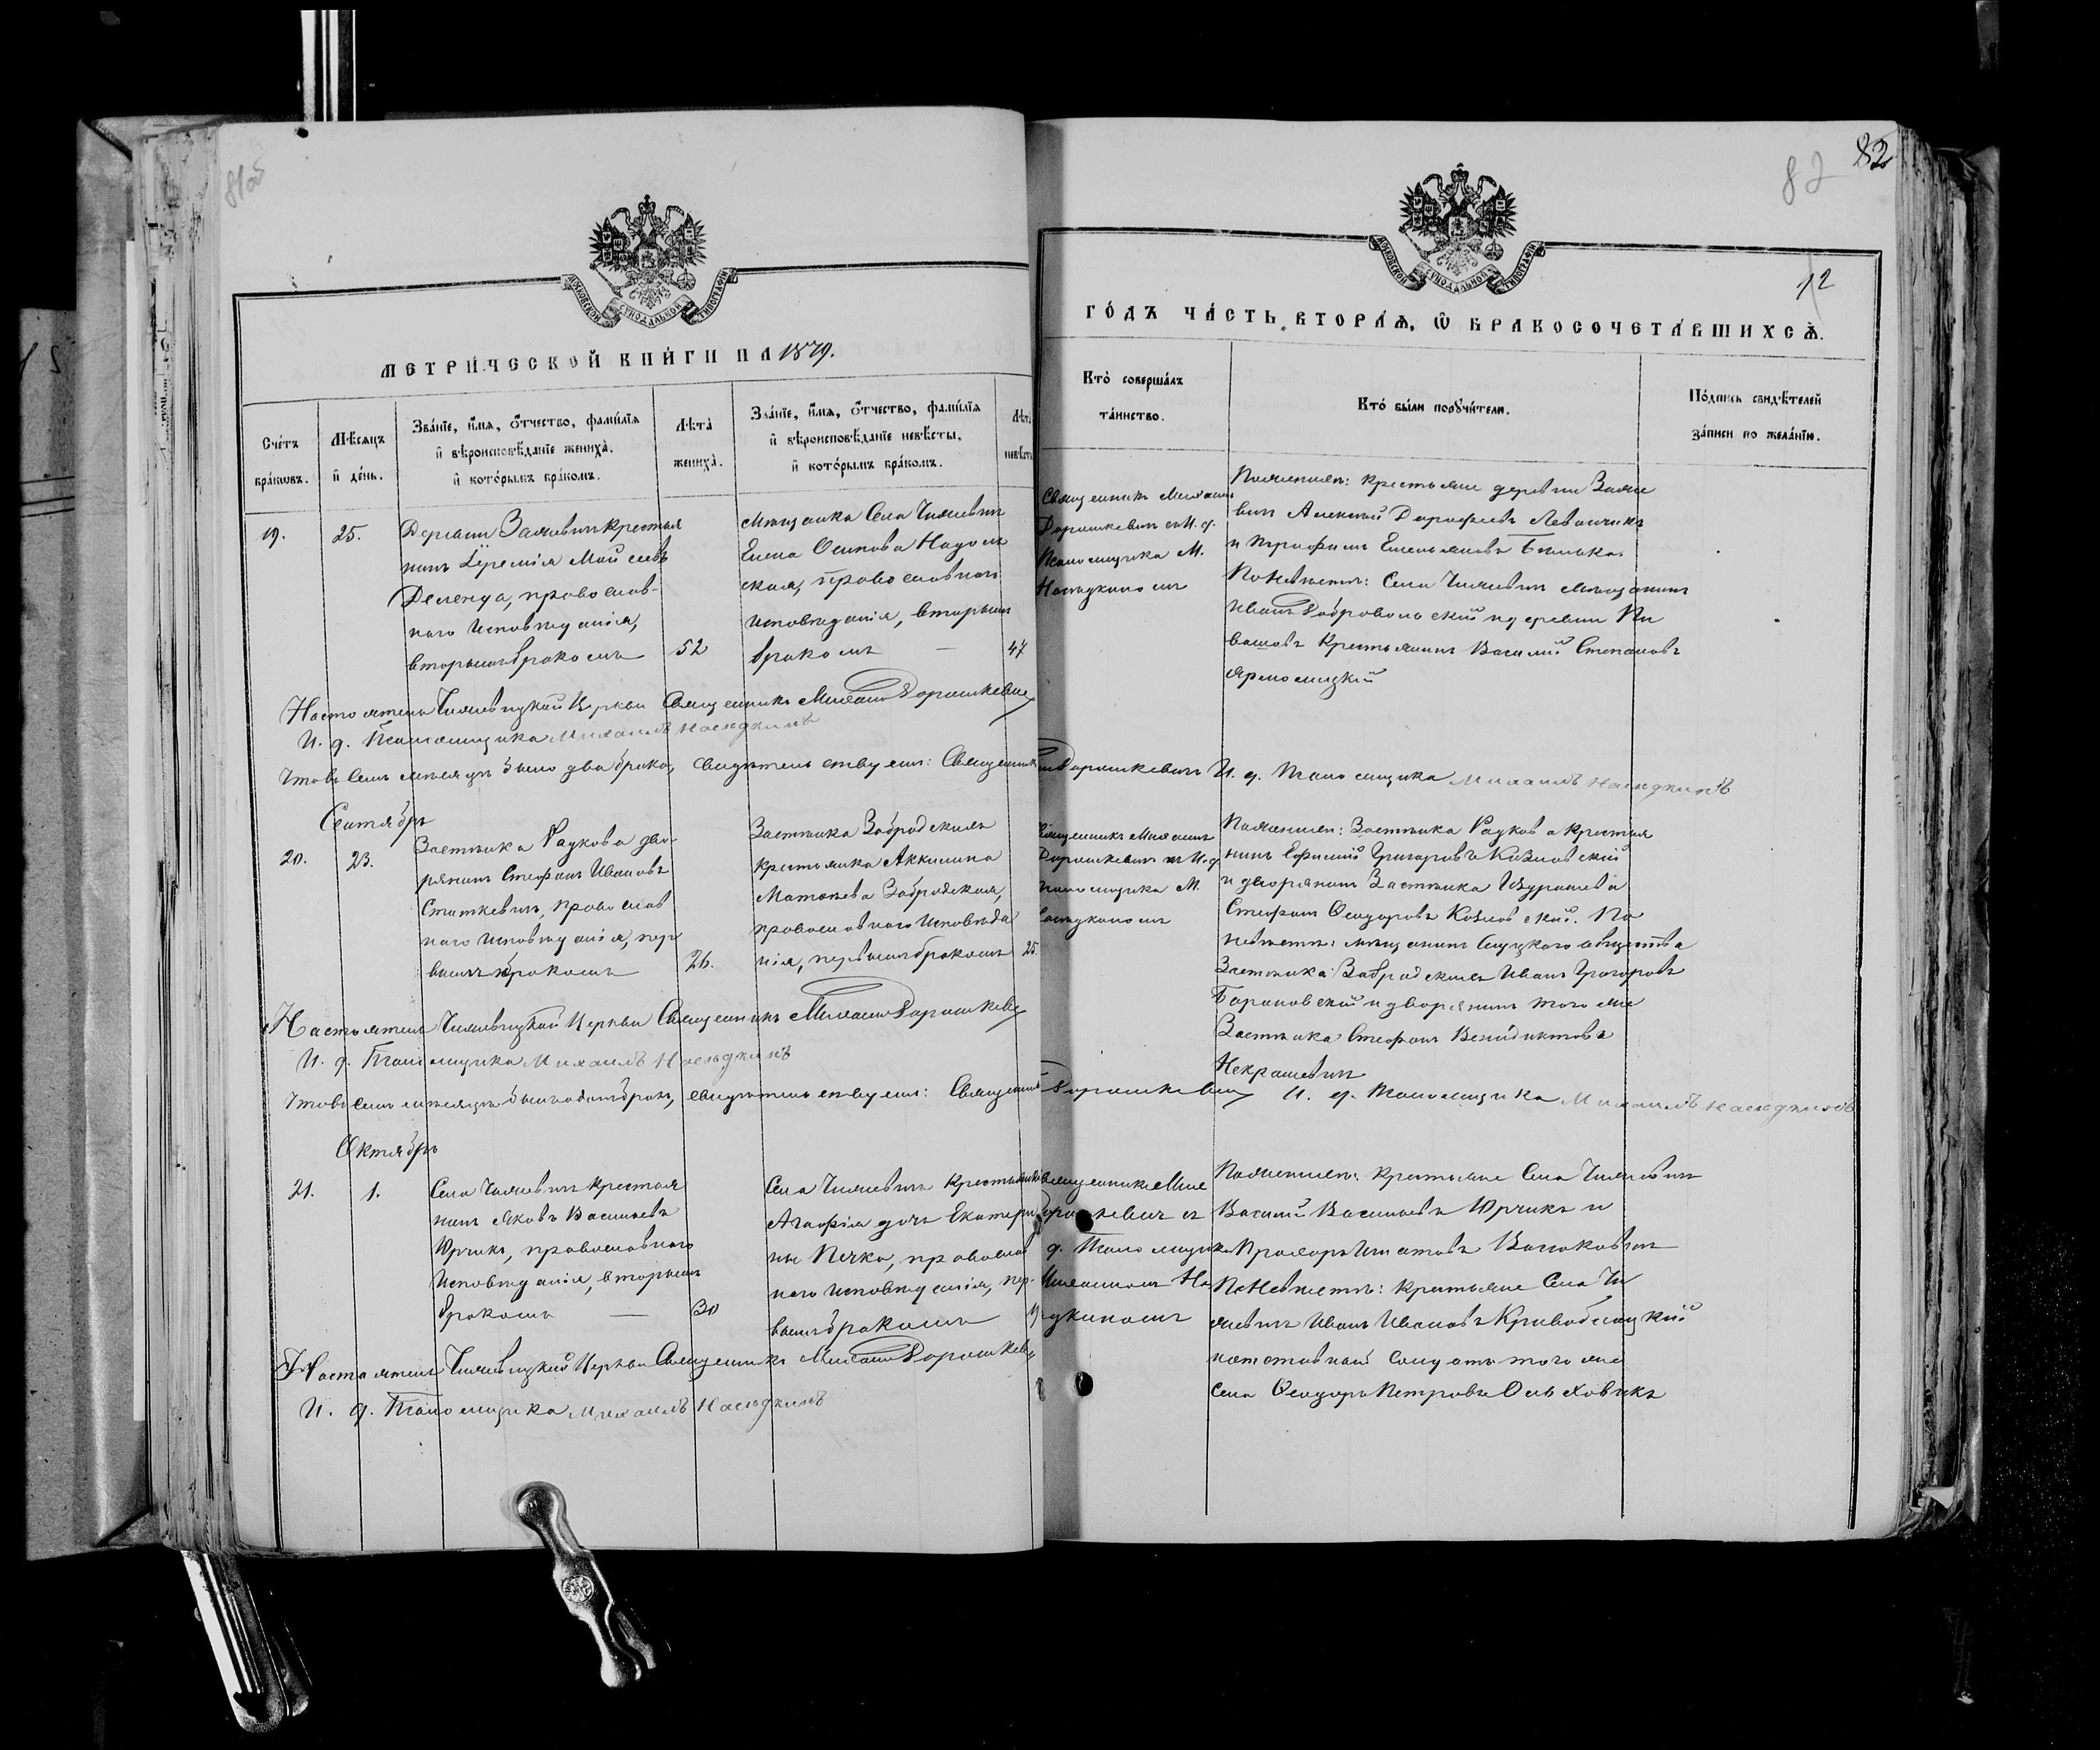 81об
82
82
12
МОСКОВСКОЙ СѴНОДАЛЬНОЙ ТИПОГРАФІИ
МОСКОВСКОЙ СѴНОДАЛЬНОЙ ТИПОГРАФІИ
МЕТРИ́ЧЕСКОЙ КНИ́ГИ НА 1879.
ГО́ДЪ ЧА́СТЬ ВТОРА́Ѧ, Ѡ БРАКОСОЧЕТА́ВШИХСѦ.
Сче́тъ бра́ковъ.
Мѣ́сѧцъ и де́нь.
Зва́нїе, и́мѧ, о́тчество, фами́лїѧ
и вѣроисповѣ́данїе жениха̀,
и кото́рымъ бра́комъ.
Лѣ́та жениха̀.
Зва́нїе, и́мѧ, о́тчество, фами́лїѧ
и вѣроисповѣ́данїе невѣ́сты,
и кото́рымъ бра́комъ.
Лѣ́та невѣ́сты
Кто̀ соверша́лъ
та́инство.
Кто̀ бы́ли порꙋчи́тели.
По́дпись свидѣ́телей
за́писи по жела́нїю.
19.
25.
Деревни Зажевичъ крестья
нинъ Іеремія Мойсеевъ
Деленда, православ-
наго исповѣданія,
вторымъ бракомъ
52
Мѣщанка Села Чижевичъ
Елена Осипова Надоль
ская, православнаго
исповѣданія, вторымъ
бракомъ —
47
Священникъ Михаилъ
Дорошкевичъ съ И. д.
Псаломщика М.
Наседкинымъ
По женихѣ: крестьяне деревни Заже
вичъ Алексѣй Дорофеевъ Левончикъ
и Трофимъ Емельяновъ Бонько.
По невѣстѣ: Села Чижевичъ мѣщанинъ
Иванъ Добровольскій и деревни Пи
вашовъ крестьянинъ Василій Степановъ
Ярмолицкій
Настоятель Чижевицкой Церкви Священникъ Михаилъ Дорошкевичъ
И. д. Псаломщика Михаилъ Наседкинъ
Что въ семъ мѣсяцѣ было два брака, свидѣтельствуемъ: Священникъ Дорошкевичъ И. д. Псаломщика Михаилъ Наседкинъ
Сентябрь
20.
23.
Застѣнка Радкова дво-
рянинъ Стефанъ Ивановъ
Статкевичъ, православ
наго исповѣданія, пер
вымъ бракомъ
26.
Застѣнка Забродскихъ
крестьянка Аккилина
Матѳеева Забродская,
православнаго исповѣда
нія, первымъ бракомъ
25.
Священникъ Михаилъ
Дорошкевичъ съ И. д.
псаломщика М.
Наседкинымъ
По женихѣ: Застѣнка Радкова крестья
нинъ Ефимій Григоровъ Козловскій
и дворянинъ Застѣнка
Стефанъ Ѳеодоровъ Козловскій. По
невѣстѣ: мѣщанинъ Слуцкаго общества
Застѣнка Забродскихъ Иванъ Григоровъ
Барановскій и дворянинъ того же
Застѣнка Стефанъ Венидиктовъ
Некрашевичъ
Настоятель Чижевицкой Церкви Священникъ Михаилъ Дорошкевичъ
И. д. Псаломщика Михаилъ Наседкинъ
Что въ семъ мѣсяцѣ былъ одинъ бракъ, свидѣтельствуемъ: Священникъ Дорошкевичъ И. д. Псаломщика Михаилъ Наседкинъ
Октябрь
21.
1.
Села Чижевичъ крестья
нинъ Яковъ Васильевъ
Юрчикъ, православнаго
исповѣданія, вторымъ
бракомъ —
30
Села Чижевичъ крестьянка
Агафія дочь Екатери
ны Печко, православ
наго исповѣданія, пер-
вымъ бракомъ
Священникъ Мих
Дорошкевичъ съ И.
д. Псаломщика
Михаиломъ На
седкинымъ
По женихѣ: крестьяне Села Чижевичъ
Василій Васильевъ Юрчикъ и
Прохоръ Игнатовъ
По Невѣстѣ: крестьяне Села Чи
жевичъ Иванъ Ивановъ Кривоблоцкій
и отставной солдатъ того же
села Ѳеодоръ Петровъ Ольховикъ
Настоятель Чижевицкой Церкви Священникъ Михаилъ Дорошкевичъ
И. д. Псаломщика Михаилъ Наседкинъ